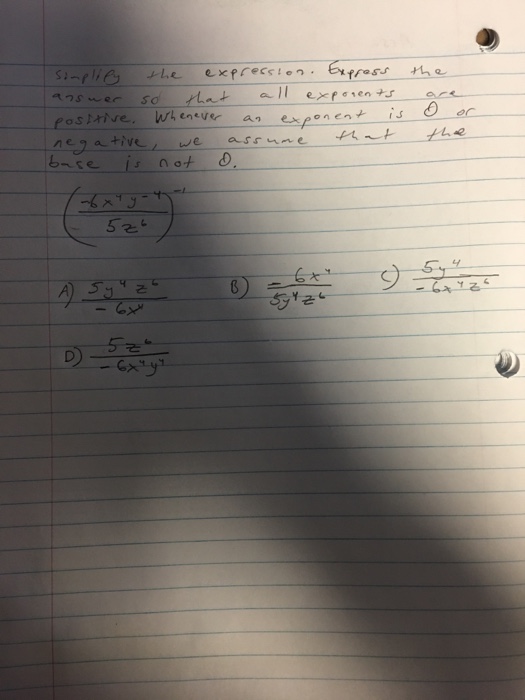 Simplify the expression. Express the
answer so that all exponents are
positive. Whenever an exponent is 0 or
negative, we assume that the
base is not 0.
(-6x⁴y⁻⁴/5z⁶)⁻¹
A) 5y⁴z⁶/-6x⁴ B) -6x⁴/5y⁴z⁶ C) 5y⁴/-6x⁴z⁶
D) 5z⁶/-6x⁴y⁴